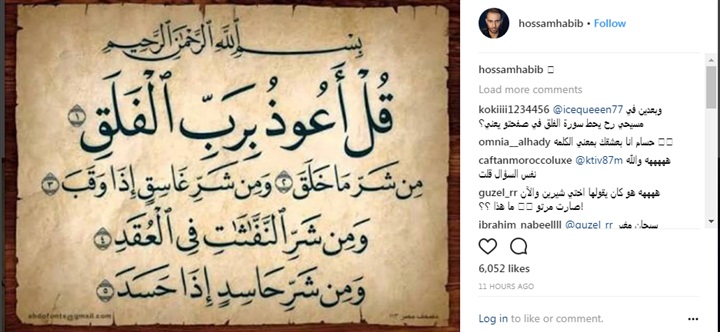 بِسْمِ اللَّهِ الرَّحْمَٰنِ الرَّحِيمِ
قُلْ أَعُوذُ بِرَبِّ الْفَلَقِ ١
مِن شَرِّ مَا خَلَقَ ٢ وَمِن شَرِّ غَاسِقٍ إِذَا وَقَبَ ٣
وَمِن شَرِّ النَّفَّاثَاتِ فِي الْعُقَدِ ٤
وَمِن شَرِّ حَاسِدٍ إِذَا حَسَدَ ٥
abdofonts@gmail.com
مصحف مصر
hossamhabib • Follow
hossamhabib
Load more comments
kokiiii1234456 @icequeeen77 وبعدين في
مسيحي رح يحط سورة الفلق في صفحتو يعني؟
omnia__alhady حسام انا بعشقك بمعني الكلمه
caftanmoroccoluxe @ktiv87m ههههه والله
نفس السؤال قلت
guzel_rr هههه هو كان يقولها اختي شيرين والآن
صارت مرتو ما هذا ؟؟!
ibrahim_nabeellll @guzel_rr سبحان مغير
6,052 likes
11 HOURS AGO
Log in to like or comment.